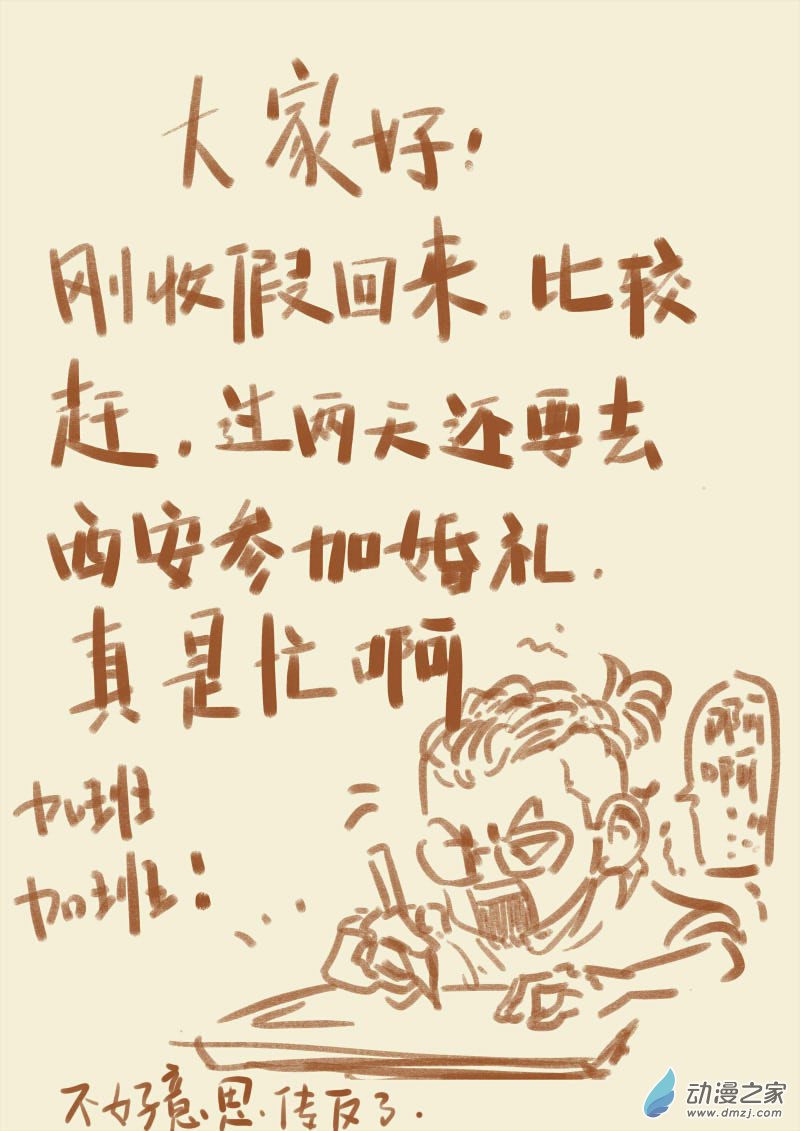 大家好!
刚收假回来.比较
赶.过两天还要去
西安参加婚礼.
真是忙啊
啊
啊
……
加班
加班!
不好意思.传反了.
动漫之家
www.dmzj.com